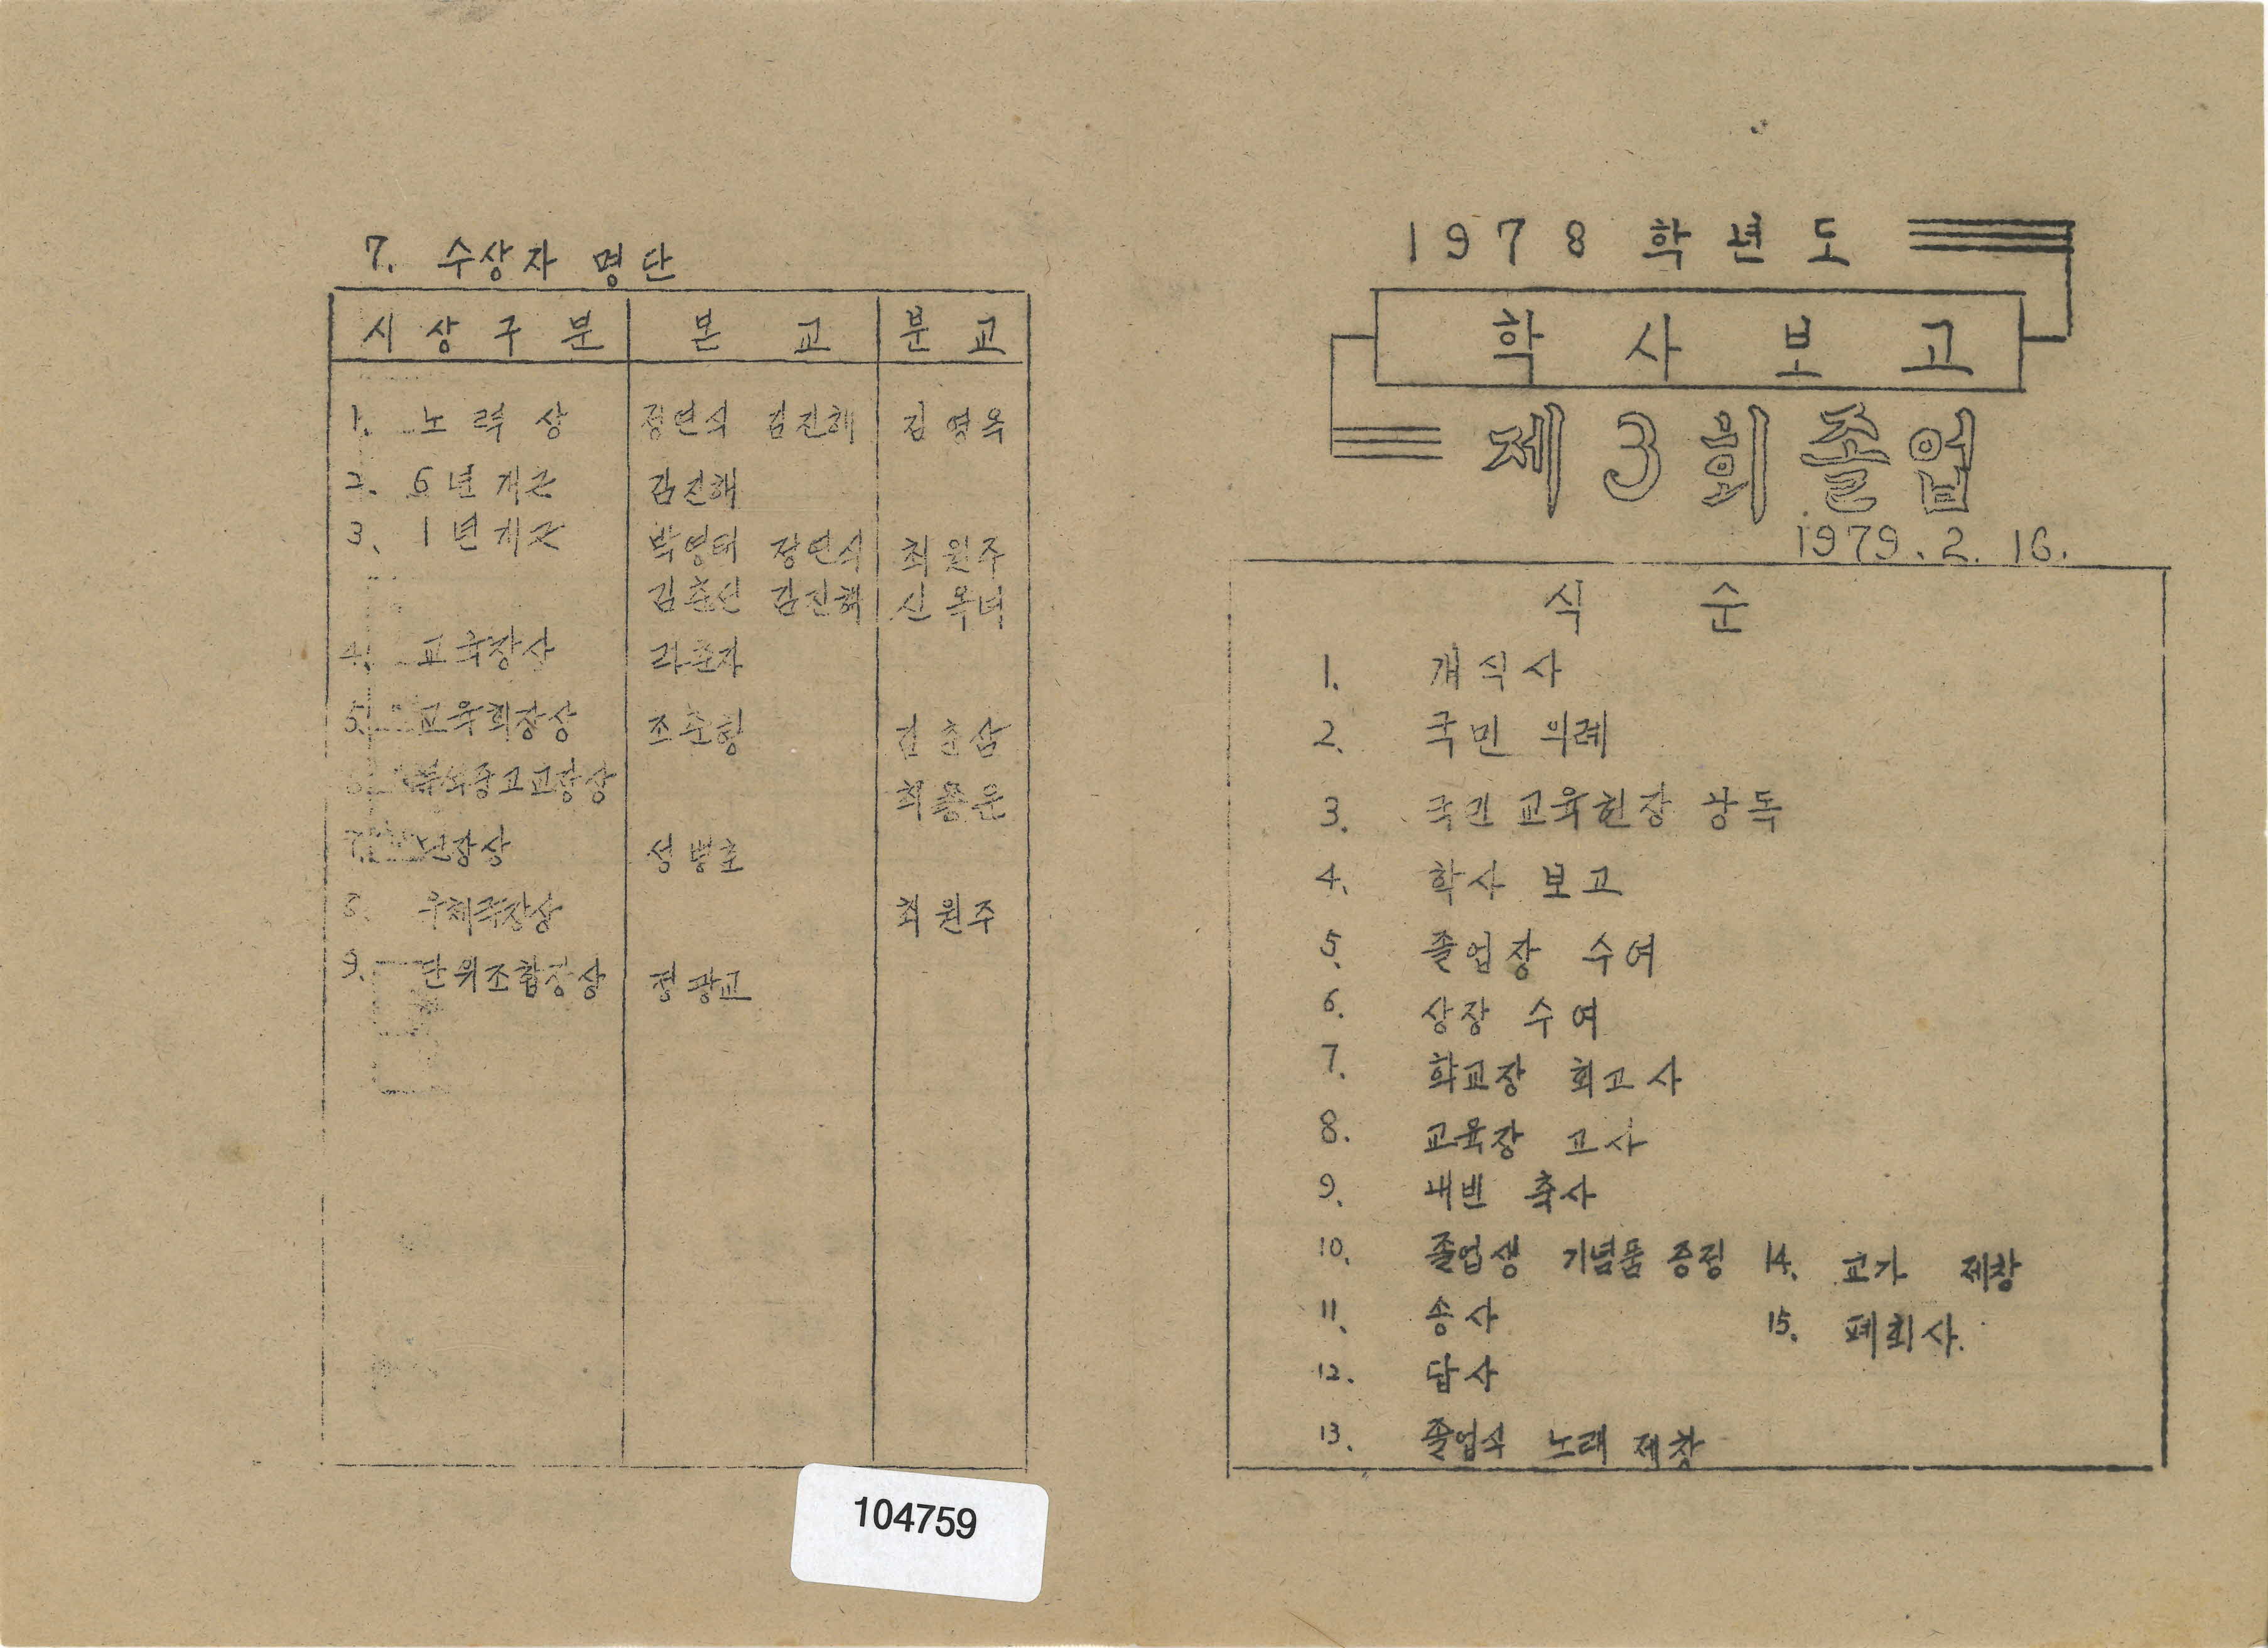 7. 수상자 명단
시상구분 본교 분교
1. 노력상 정연식 김진해 김영옥
2. 6년개근 김진해
3. 1년개근 박영태 정연식 최원주
김춘선 김진해 신옥녀
4. 교육장상 라춘자
5. 교육회장상 조순형 김춘삼
중고교장상
7. 성병호
8. 우체국장상 최원주
9. 단위조합장상 정광교
104759
1978 학년도
학사보고
제3회졸업
1979.2.16.
식순
1. 개식사
2. 국민 의례
3. 국민 교육헌장 낭독
4. 학사 보고
5. 졸업장 수여
6. 상장 수여
7. 학교장 회고사
8. 교육장 고사
9. 내빈 축사
10. 졸업생 기념품 증정
11. 송사
12. 답사
13. 졸업식 노래 제창
14. 교가 제창
15. 폐회사.